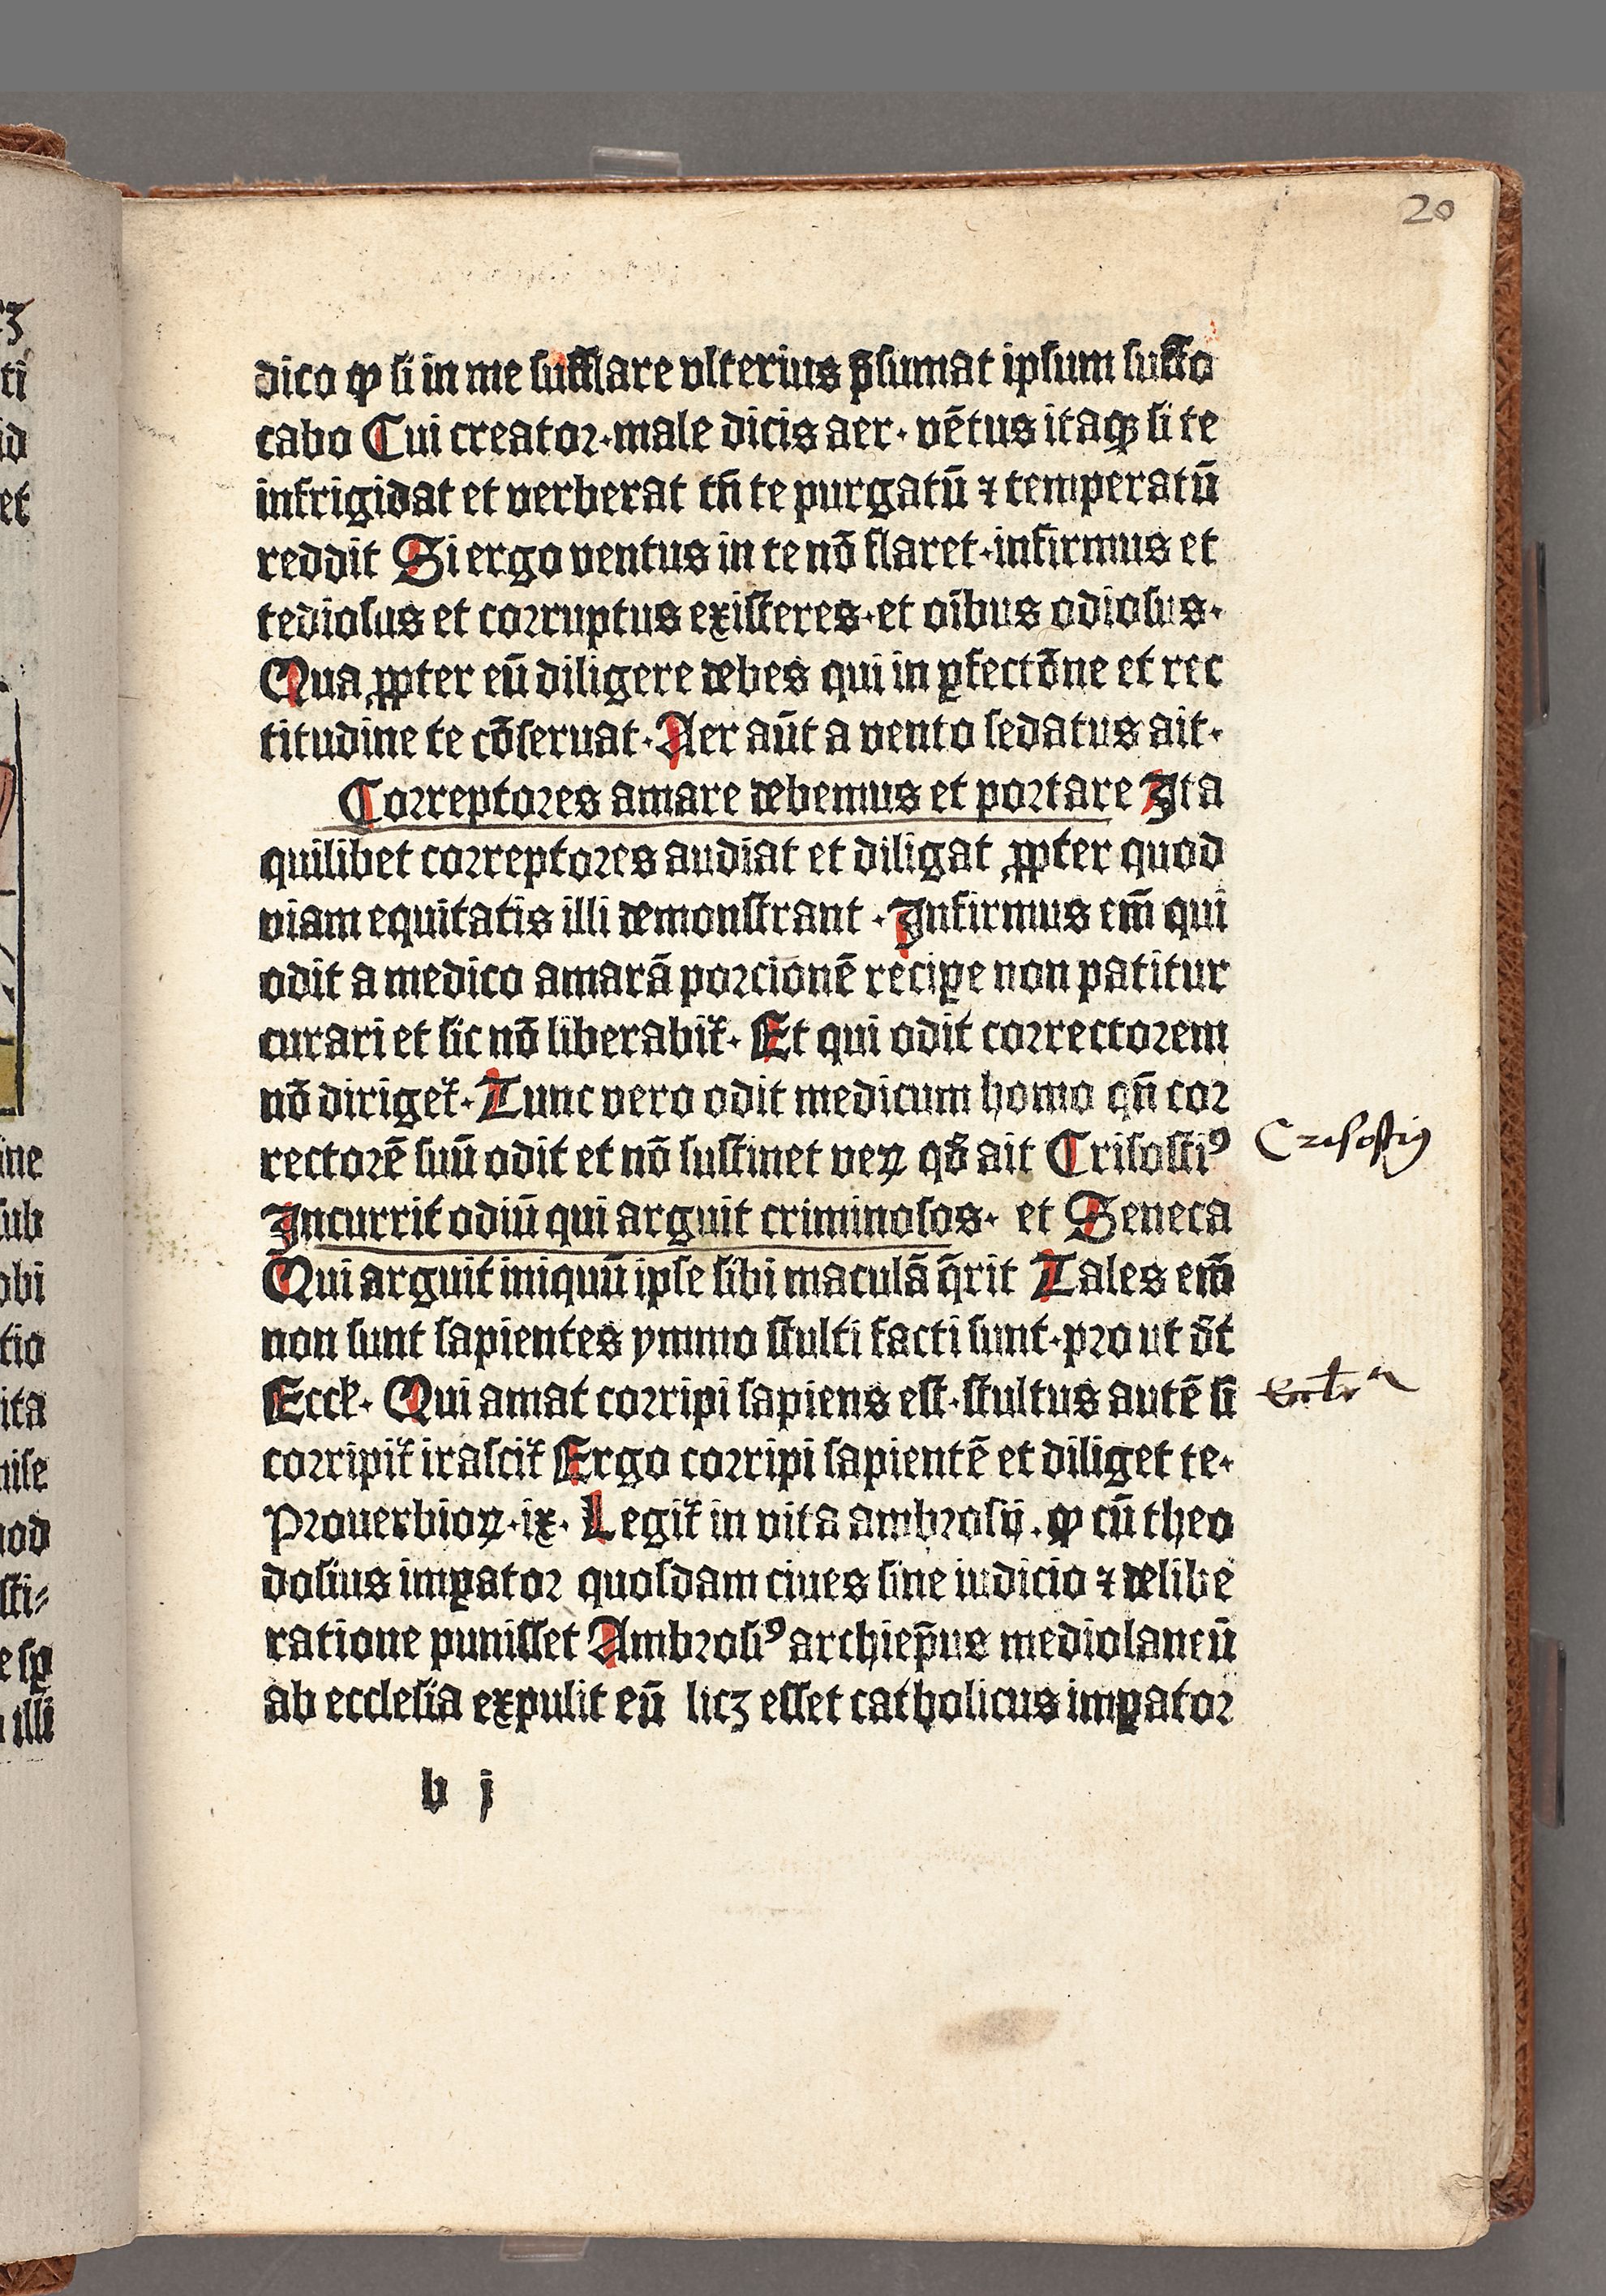 20
dico ꝙ si in me sufflare vlterius p̄sumat ipsum suffo
cabo Cui creator·male dicis aer· vētus itaqꝫ si te
infrigidat et verberat tn̄ te purgatū ⁊ temperatū
reddit Si ergo ventus in te nō flaret·infirmus et
tediosus et corruptus existeres·et oībus odiosus·
Qua ꝓpter eū diligere debes qui in ꝑfectōne et rec
titudine te cōseruat·Aer aūt a vento sedatus ait·
Correptores amare debemus et portare Ita
quilibet correptores audiat et diligat ꝓpter quod
viam equitatis illi demonstrant ·Infirmus em̄ qui
odit a medico amarā porcionē reciꝑe non patitur
curari et sic nō liberabit᷑· Et qui odit correctorem
nō diriget᷑·Tunc vero odit medicum homo qn̄ cor
rectorē suū odit et nō sustinet veꝝ qđ ait Crisostiꝰ
Crisostiꝰ
Incurrit odiū qui arguit criminosos· et Seneca
Qui arguit iniquū ipse sibi maculā q̄rit Tales em̄
non sunt sapientes ymmo stulti facti sunt·pro ut đt
Eccƚ· Qui amat corripi sapiens est·stultus autē si
corripit᷑ irascit᷑ Ergo corripi sapientē et diliget te·
Prouerbioꝝ·ix· Legit᷑ in vita ambrosij·ꝙ cū theo
dosius imꝑator quosdam ciues sine iudicio ⁊ delibe
ratione punisset Ambrosiꝰ archiep̄us mediolaneū
ab ecclesia expulit eū licꝫ esset catholicus imꝑator
b j